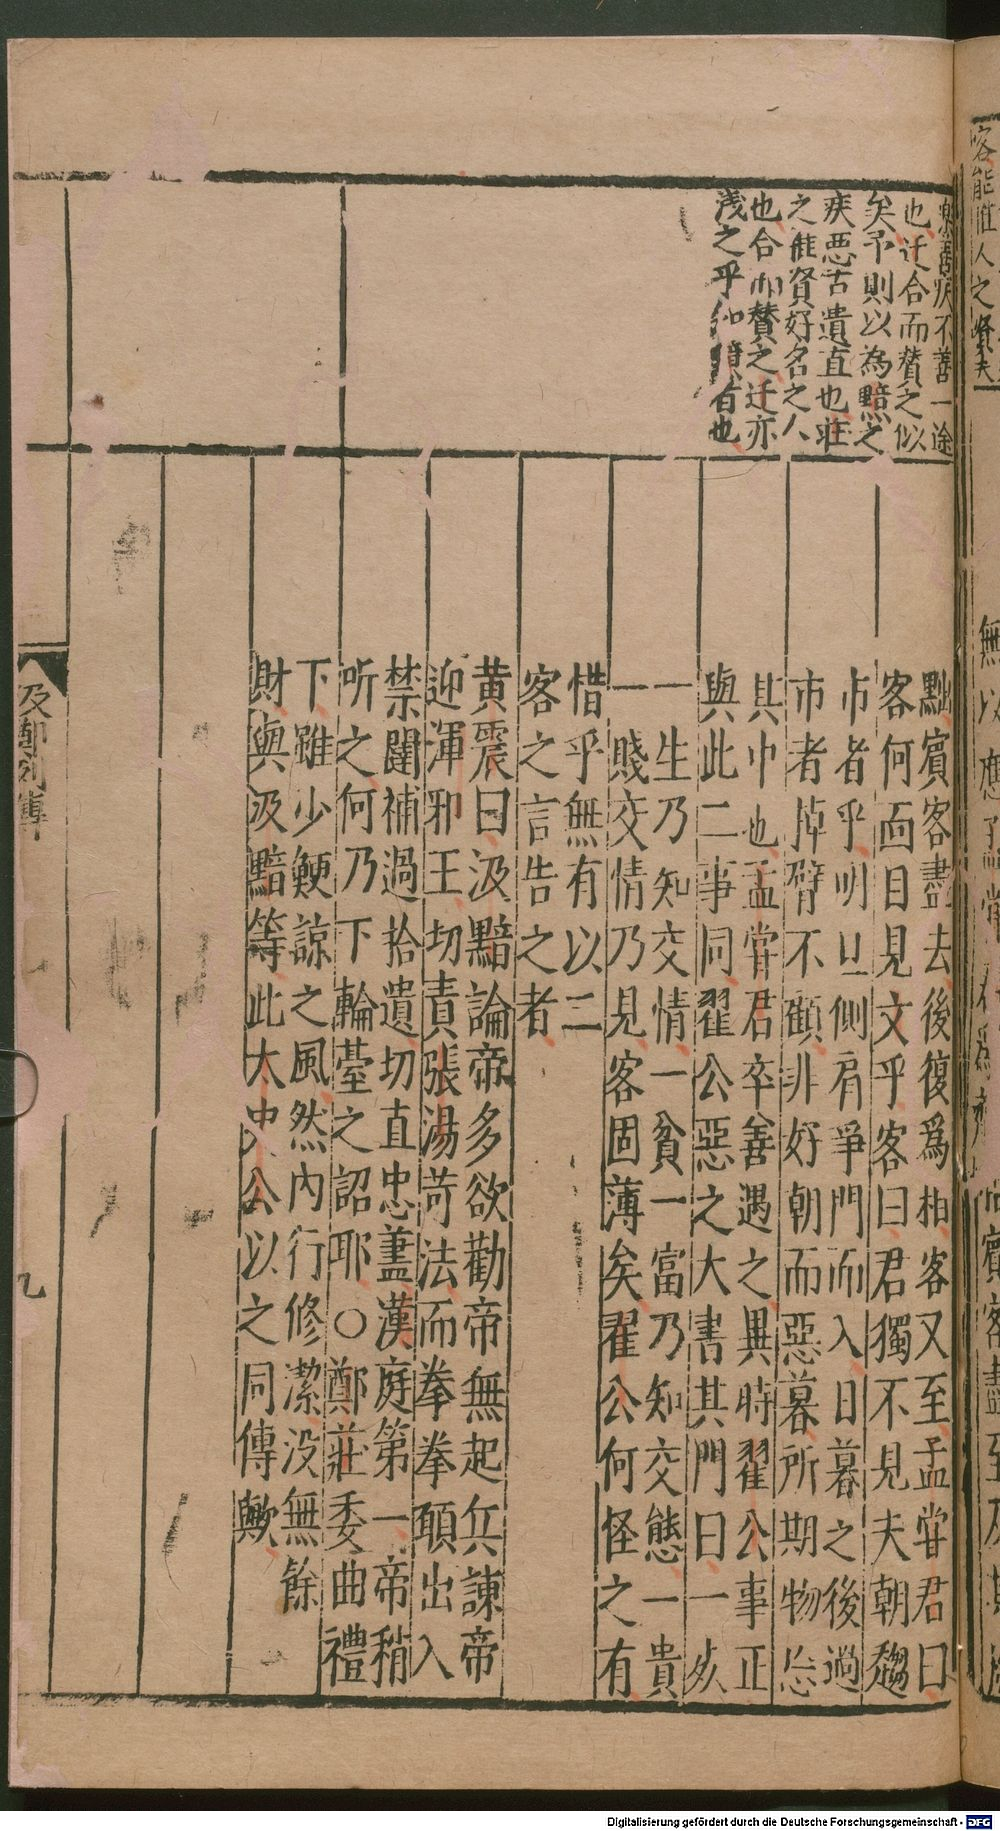 樂善疾不善一途
也迁合而贊之似
矣予則以為黯之
疾惡古遺直也莊
之推賢好名之人
也合而贊之迁亦
淺之乎知黯者也
黜賓客盡去後復爲相客又至孟甞君曰
客何面目見文乎客曰君獨不見夫朝趨
市者乎明旦側肩爭門而入日暮之後過
市者掉臂不顧非好朝而惡暮所期物忘
其中也孟甞君卒善遇之異時翟公事正
與此二事同翟公惡之大書其門曰一死
一生乃知交情一貧一富乃知交態一貴
一賤交情乃見客固薄矣翟公何怪之有
惜乎無有以二
客之言告之者
黄震曰汲黯論帝多欲勸帝無起兵諌帝
迎渾邪王切責張湯苛法而拳拳頭出入
禁闥補過拾遺切直忠藎漢庭第一帝稍
听之何乃下輪臺之詔耶○鄭莊委曲禮
下雖少鯁諒之風然內行修潔没無餘
財與汲黯等此太史公以之同傳歟
汲鄭列傳
九
Digitalisierung gefördert durch die Deutsche Forschungsgemeinschaft - DFG